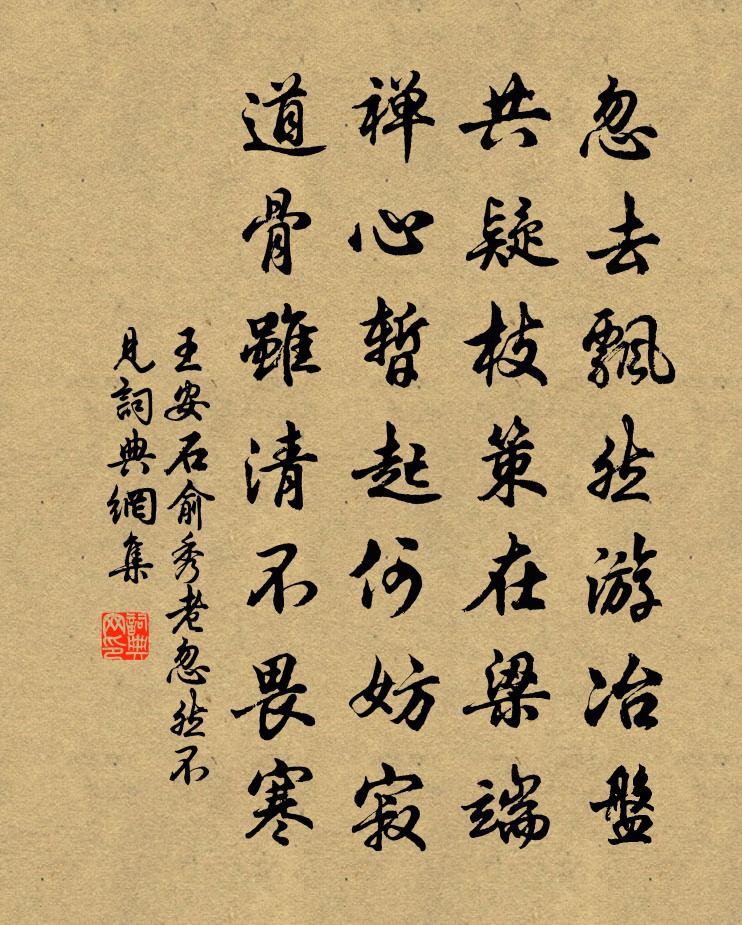 忽去飄然游冶盤
共疑枝策在梁端
禅心暫起何妨寂
道骨雖清不畏寒
王安石俞秀老忽然不
見詞典網集
詞典
网印